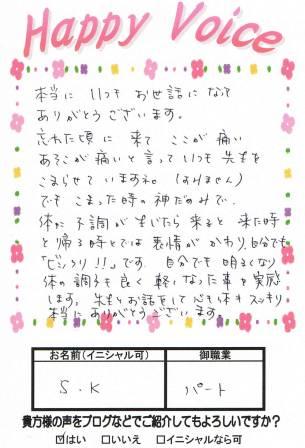 Happy Voice
本当に いつも お世話になって
ありがとうございます。
忘れた頃に 来て ここが痛い
あそこが痛いと言って いつも 先生を
こまらせていますネ。(すみません)
でも こまった時の神だのみで、
体に不調が生じたら 来ると 来た時
と帰る時とでは 表情が かわり、自分でも
「ビックリ!!」です。 自分でも 明るくなり
体の調子も良く 軽くなった事を実感
します。 先生とお話をして 心も体も スッキリ
本当に ありがとうございます。
お名前(イニシャル可) 御職業
S.K パート
貴方様の声をブログなどでご紹介してもよろしいですか?
☑はい □いいえ □イニシャルなら可